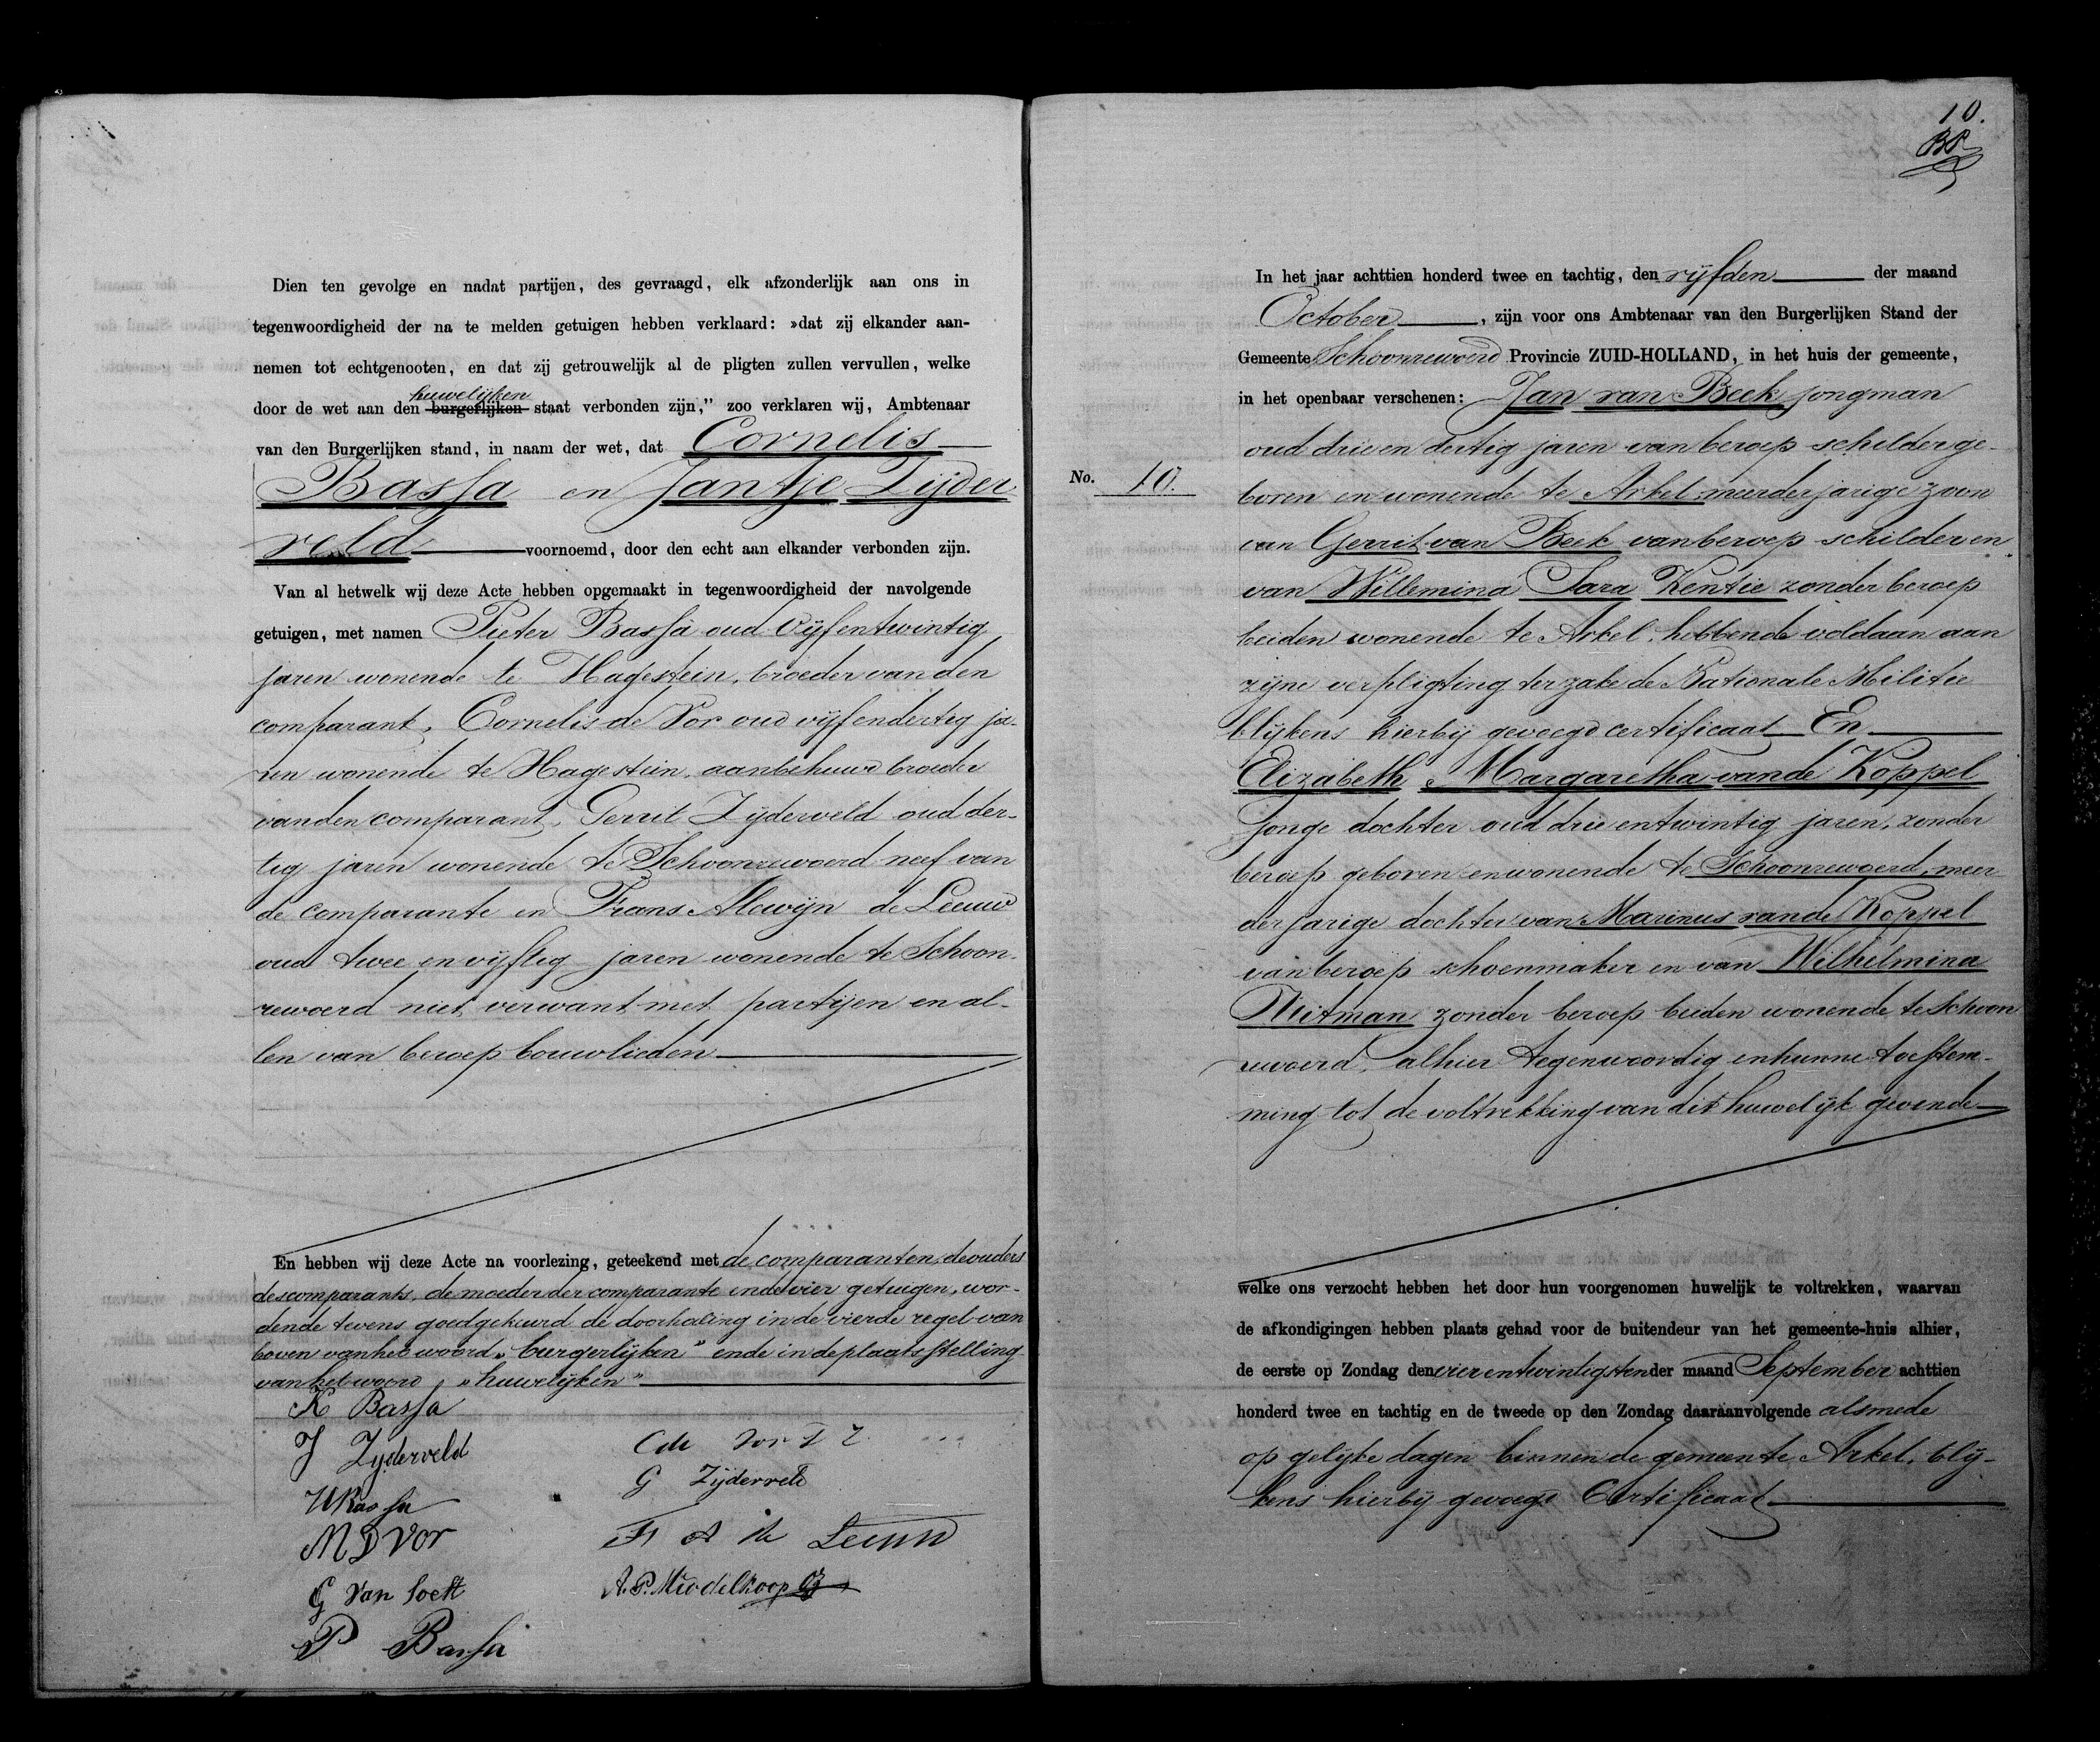 Dien ten gevolge en nadat partijen, des gevraagd, elk afzonderlijk aan ons in
tegenwoordigheid der na te melden getuigen hebben verklaard: »dat zij elkander aan-
nemen tot echtgenooten, en dat zij getrouwelijk al de pligten zullen vervullen, welke
huwelijken
door de wet aan den burgerlijken staat verbonden zijn," zoo verklaren wij, Ambtenaar
van den Burgerlijken stand, in naam der wet, dat Cornelis
Bassa en Jantje Zijder
veld voornoemd, door den echt aan elkander verbonden zijn.
Van al hetwelk wij deze Acte hebben opgemaakt in tegenwoordigheid der navolgende
getuigen, met namen Pieter Bassa oud vijfentwintig
jaren wonende te Hagestein, broeder van den
comparant, Cornelis de Vor oud vijfendertig ja-
ren wonende te Hagestein, aanbehuwd broeder
van den comparant, Gerrit Zijderveld oud der-
tig jaren wonende te Schoonrewoerd neef van
de comparante en Frans Alewijn de Leeuw
oud twee en vijftig jaren wonende te Schoon-
rewoerd niet verwant met partijen en al-
len van beroep bouwlieden
En hebben wij deze Acte na voorlezing, geteekend met de comparanten, de ouders
des comparants, de moeder der comparante en de vier getuigen, wor-
dende tevens goedgekeurd de doorhaling in de vierde regel van
boven van het woord „burgerlijken" en de in de plaats stelling
van het woord „huwelijken"
K Bassa
J Zijderveld
C de Vor
G Zijderveld
Bassa
M D Vor
F A de Leeuw
G Van Soest
A. P. Middelkoop
P Bassa
10.
BP
In het jaar achttien honderd twee en tachtig, den vijfden der maand
October, zijn voor ons Ambtenaar van den Burgerlijken Stand der
Gemeente Schoonrewoerd Provincie ZUID-HOLLAND, in het huis der gemeente,
in het openbaar verschenen: Jan van Beek jongman
oud drie en dertig jaren van beroep schilder ge-
No. 10.
boren en wonende te Arkel meerderjarige zoon
van Gerrit van Beek van beroep schilder en
van Willemina Sara Kentie zonder beroep
beiden wonende te Arkel, hebbende voldaan aan
zijne verpligting ter zake de Nationale Militie
blijkens hierbij gevoegd certificaat En
Elizabeth Margaretha van de Koppel
jonge dochter oud drie en twintig jaren, zonder
beroep geboren en wonende te Schoonrewoerd, meer
derjarige dochter van Marinus van de Koppel
van beroep schoenmaker en van Wilhelmina
Witman zonder beroep beiden wonende te Schoon
rewoerd, alhier tegenwoordig en hunne toestem-
ming tot de voltrekking van dit huwelijk gevende
welke ons verzocht hebben het door hun voorgenomen huwelijk te voltrekken, waarvan
de afkondigingen hebben plaats gehad voor de buitendeur van het gemeente-huis alhier,
de eerste op Zondag den vierentwintigsten der maand September achttien
honderd twee en tachtig en de tweede op den Zondag daaraanvolgende alsmede
op gelijke dagen binnen de gemeente Arkel, blij-
kens hierbij gevoegd Certificaat